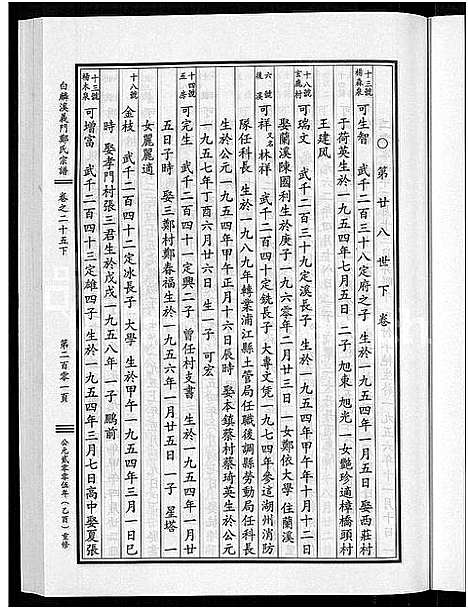 ○第廿八世下卷
十三號
楊森泉
可生智 武千二百三十八定府之子 生於一九五四年一月五日 娶西莊村
于荷英生於一九五四年七月五日 二子 旭東 旭光 一女艷珍適樟橋頭村
王建风
十八號
玄鹿村
可瑞文 武千二百三十九定溪長子 生於一九五四年甲午年十月十二日
娶蘭溪陳國利生於庚子一九六零年二月廿三日 一女鄭依大學 住蘭溪
六號
後溪
可祥 又名林祥 武千二百四十定銑長子 大專文凭 一九七四年參迼湖州消防
隊任科長 生於一九八九年轉業浦江縣土管局任職後調縣勞動局任科長
生於公元一九五四年甲午正月十六日辰時 娶本鎮蔡村蔡琦英生於公元
一九五七年丁酉六月廿六日 生一子 可宏
十四號
五房
可定 武千二百四十一定興二子 曾任村支書 生於一九五四年一月廿
五日子時 娶三鄭村鄭春福生於一九五六年一月廿五日 一子 星塔 一
女麗麗適
十八號
金枝 武千二百四十二定冰長子 大學 生於甲午一九五四年三月一日巳
時 娶孝門村張三君生於戊戌一九五八年 一子 鵬前
十三號
楊木泉
可增富 武千二百四十三定雄四子 生於一九五四年三月七日高中 娶夏張
白麟溪義門鄭氏宗譜
卷之二十五下
第二百零一頁
公元貳零零伍年(乙酉)重修